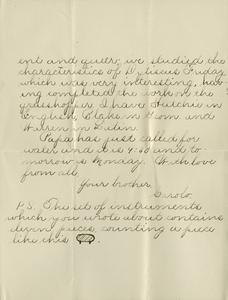 ent and queer; we studied the
characteristics of Dytiscus Friday
which was very interesting, hav-
ing completed the work on the
grasshopper. I have Fulchie in
English, Clapp in Geom and
Warren in Latin.
Papa has just called for
water and it is 9:40 and to-
morrow is Monday. With love
from all
Your brother,
Harold.
P.S. The set of instruments
which you wrote about contains
eleven pieces, counting a piece
like this